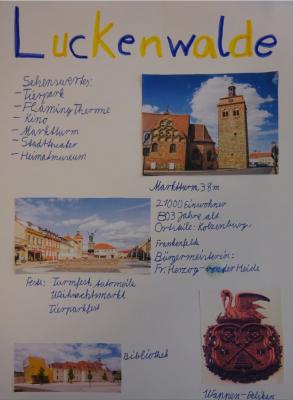 Luckenwalde
Sehenswertes:
- Tierpark
- Fläming Therme
- Kino
- Marktturm
- Stadttheater
- Heimatmuseum
Marktturm 38m
21000 Einwohner
803 Jahre alt
Ortsteile: Kolzenburg,
Frankenfelde
Bürgermeisterin:
Fr. Herzog von der Heide
Feste: Turmfest Automeile
Weihnachtsmarkt
Tierparkfest
Bibliothek
Wappen - Pelikan